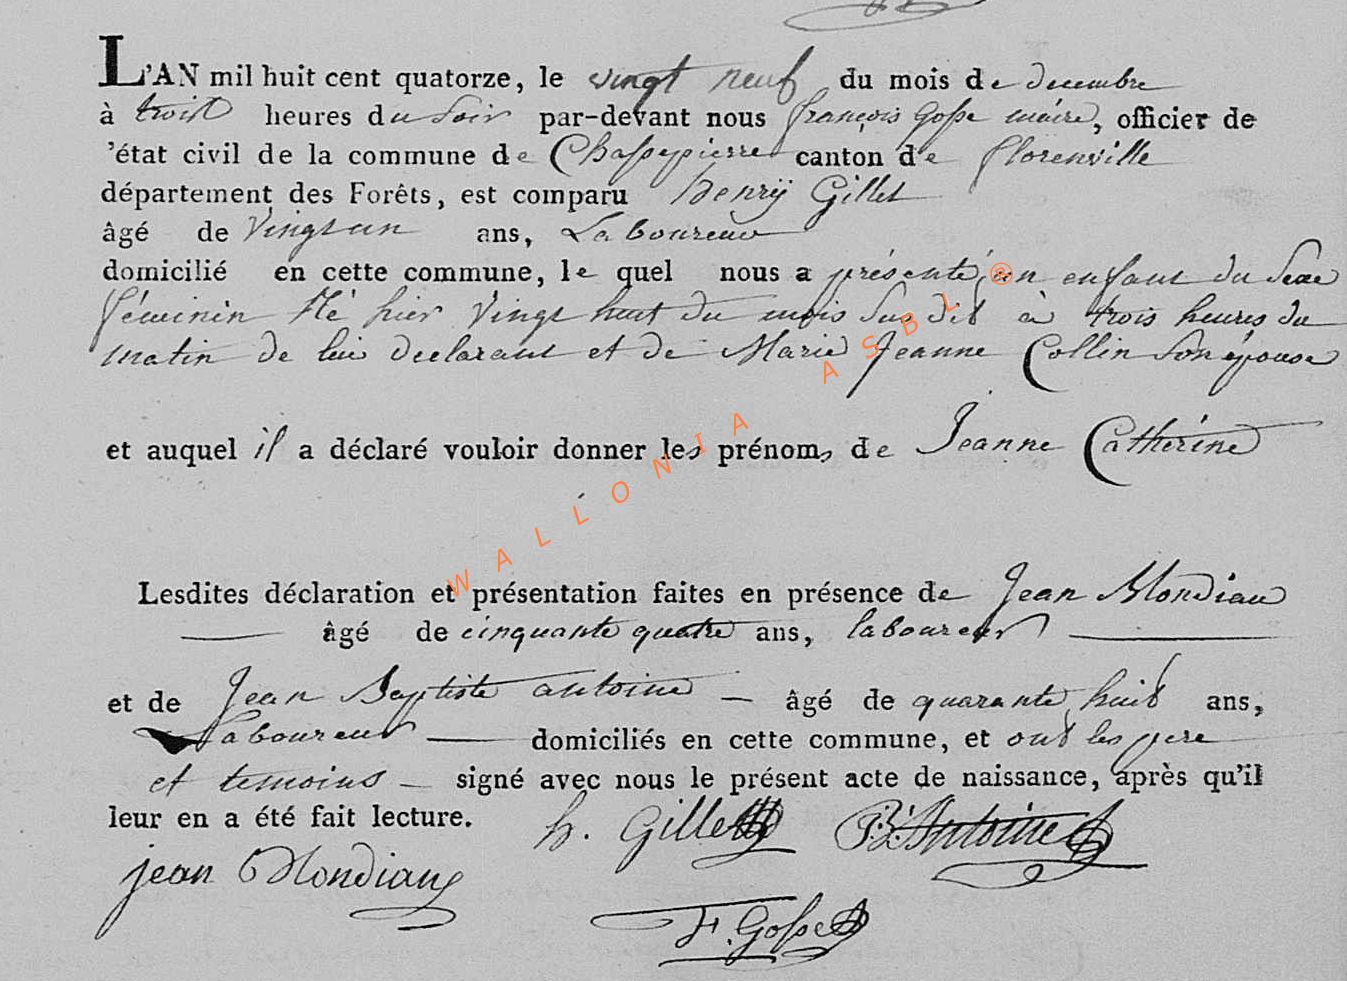 L'AN mil huit cent quatorze, le vingt neuf du mois de decembre
à trois heures du soir par-devant nous françois Gosse maire, officier de
'état civil de la commune de Chassepierre canton de florenville
département des Forêts, est comparu henrÿ Gillet
âgé de vingt un ans, Laboureur
domicilié en cette commune, le quel nous a présenté un enfant du Sexe
féminin Né hier Vingt huit du mois Sus dit à trois heures du
matin de lui declarant et de Marie Jeanne Collin Son épouse
et auquel il a déclaré vouloir donner les prénoms de Jeanne Catherine
Lesdites déclaration et présentation faites en présence de Jean Mondiau
âgé de cinquante quatre ans, laboureur
et de Jean Baptiste antoine âgé de quarante huit ans,
Laboureur domiciliés en cette commune, et ont les pere
et temoins signé avec nous le présent acte de naissance, après qu'il
leur en a été fait lecture. h. Gillet B. Antoine
jean Mondiaux
F. Gosse
WALLONIA ASBL ®